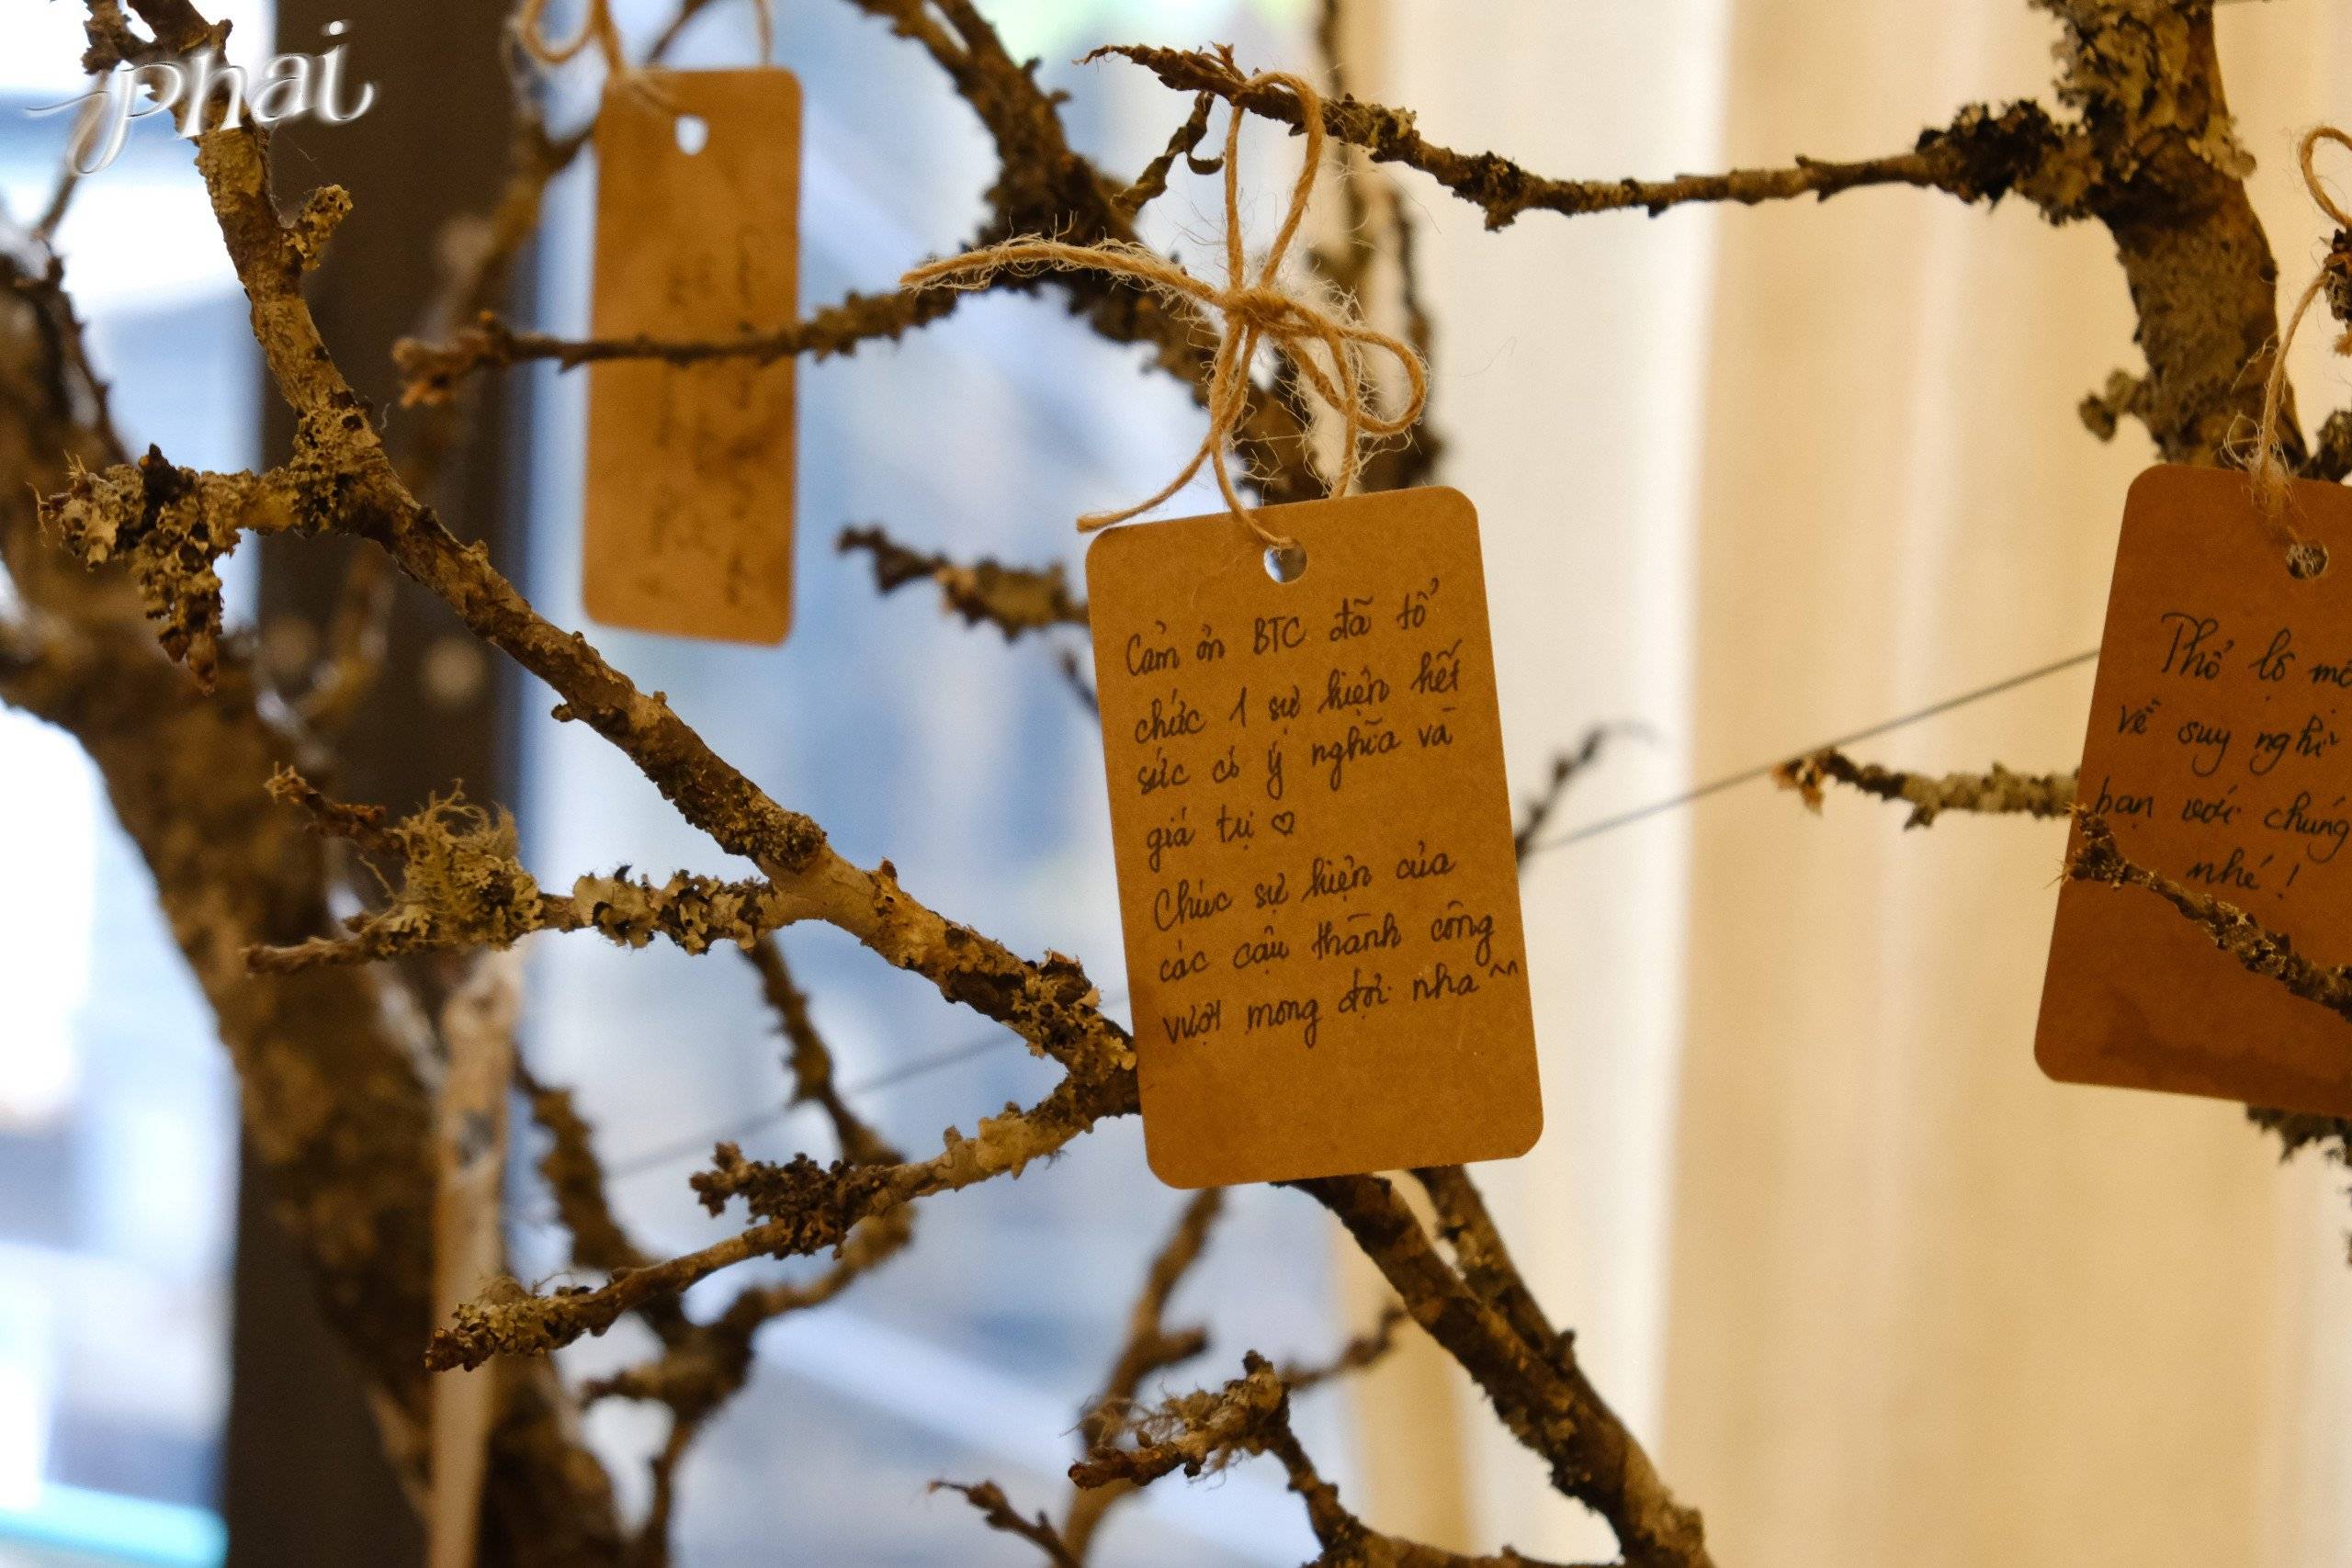 phai
Cảm ơn BTC đã tổ
chức 1 sự kiện hết
sức có ý nghĩa và
giá tṛị ♡
Chúc sự kiện của
các cậu thành công
vượt mong đợi nha ^^
Thổ lộ
về suy nghĩ
bạn với chúng
nhé !